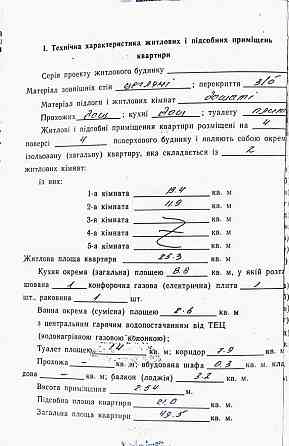 I. Технічна характеристика житлових і підсобних приміщень
квартири
Серія проекту житлового будинку
Матеріал зовнішніх стін цегляні ; перекриття з/б
Матеріал підлоги і житлових кімнат дощаті
Прохожих дощ ; кухні дощ ; туалету
Житлові і підсобні приміщення квартири розміщені на 4
поверсі 4 поверхового будинку і являють собою окрему
ізольовану (загальну) квартиру, яка складається із 2
житлових кімнат:
із них:
1-а кімната 13.4 кв. м
2-а кімната 11.9 кв. м
3-я кімната кв. м
4-а кімната кв. м
5-а кімната кв. м
Житлова площа квартири 25.3 кв. м
Кухня окрема (загальна) площею 8.8 кв. м, у якій розта
шована 1 конфорочна газова (електрична) плита 1
шт., раковина 1 шт.
Ванна окрема (сумісна) площею 2.6 кв. м
з центральним гарячим водопостачанням від ТЕЦ
(водонагрівною газовою колонкою);
Туалет площею 1.4 кв. м; коридор 7.9 кв. м
Прохожа кв. м; вбудована шафа 0.3 кв. м. кла
дова — кв. м; балкон (лоджія) 3.2 кв. м.
Висота приміщення 2.54 м.
Підсобна площа квартири 21.0 кв. м.
Загальна площа квартири 49.5 кв. м.